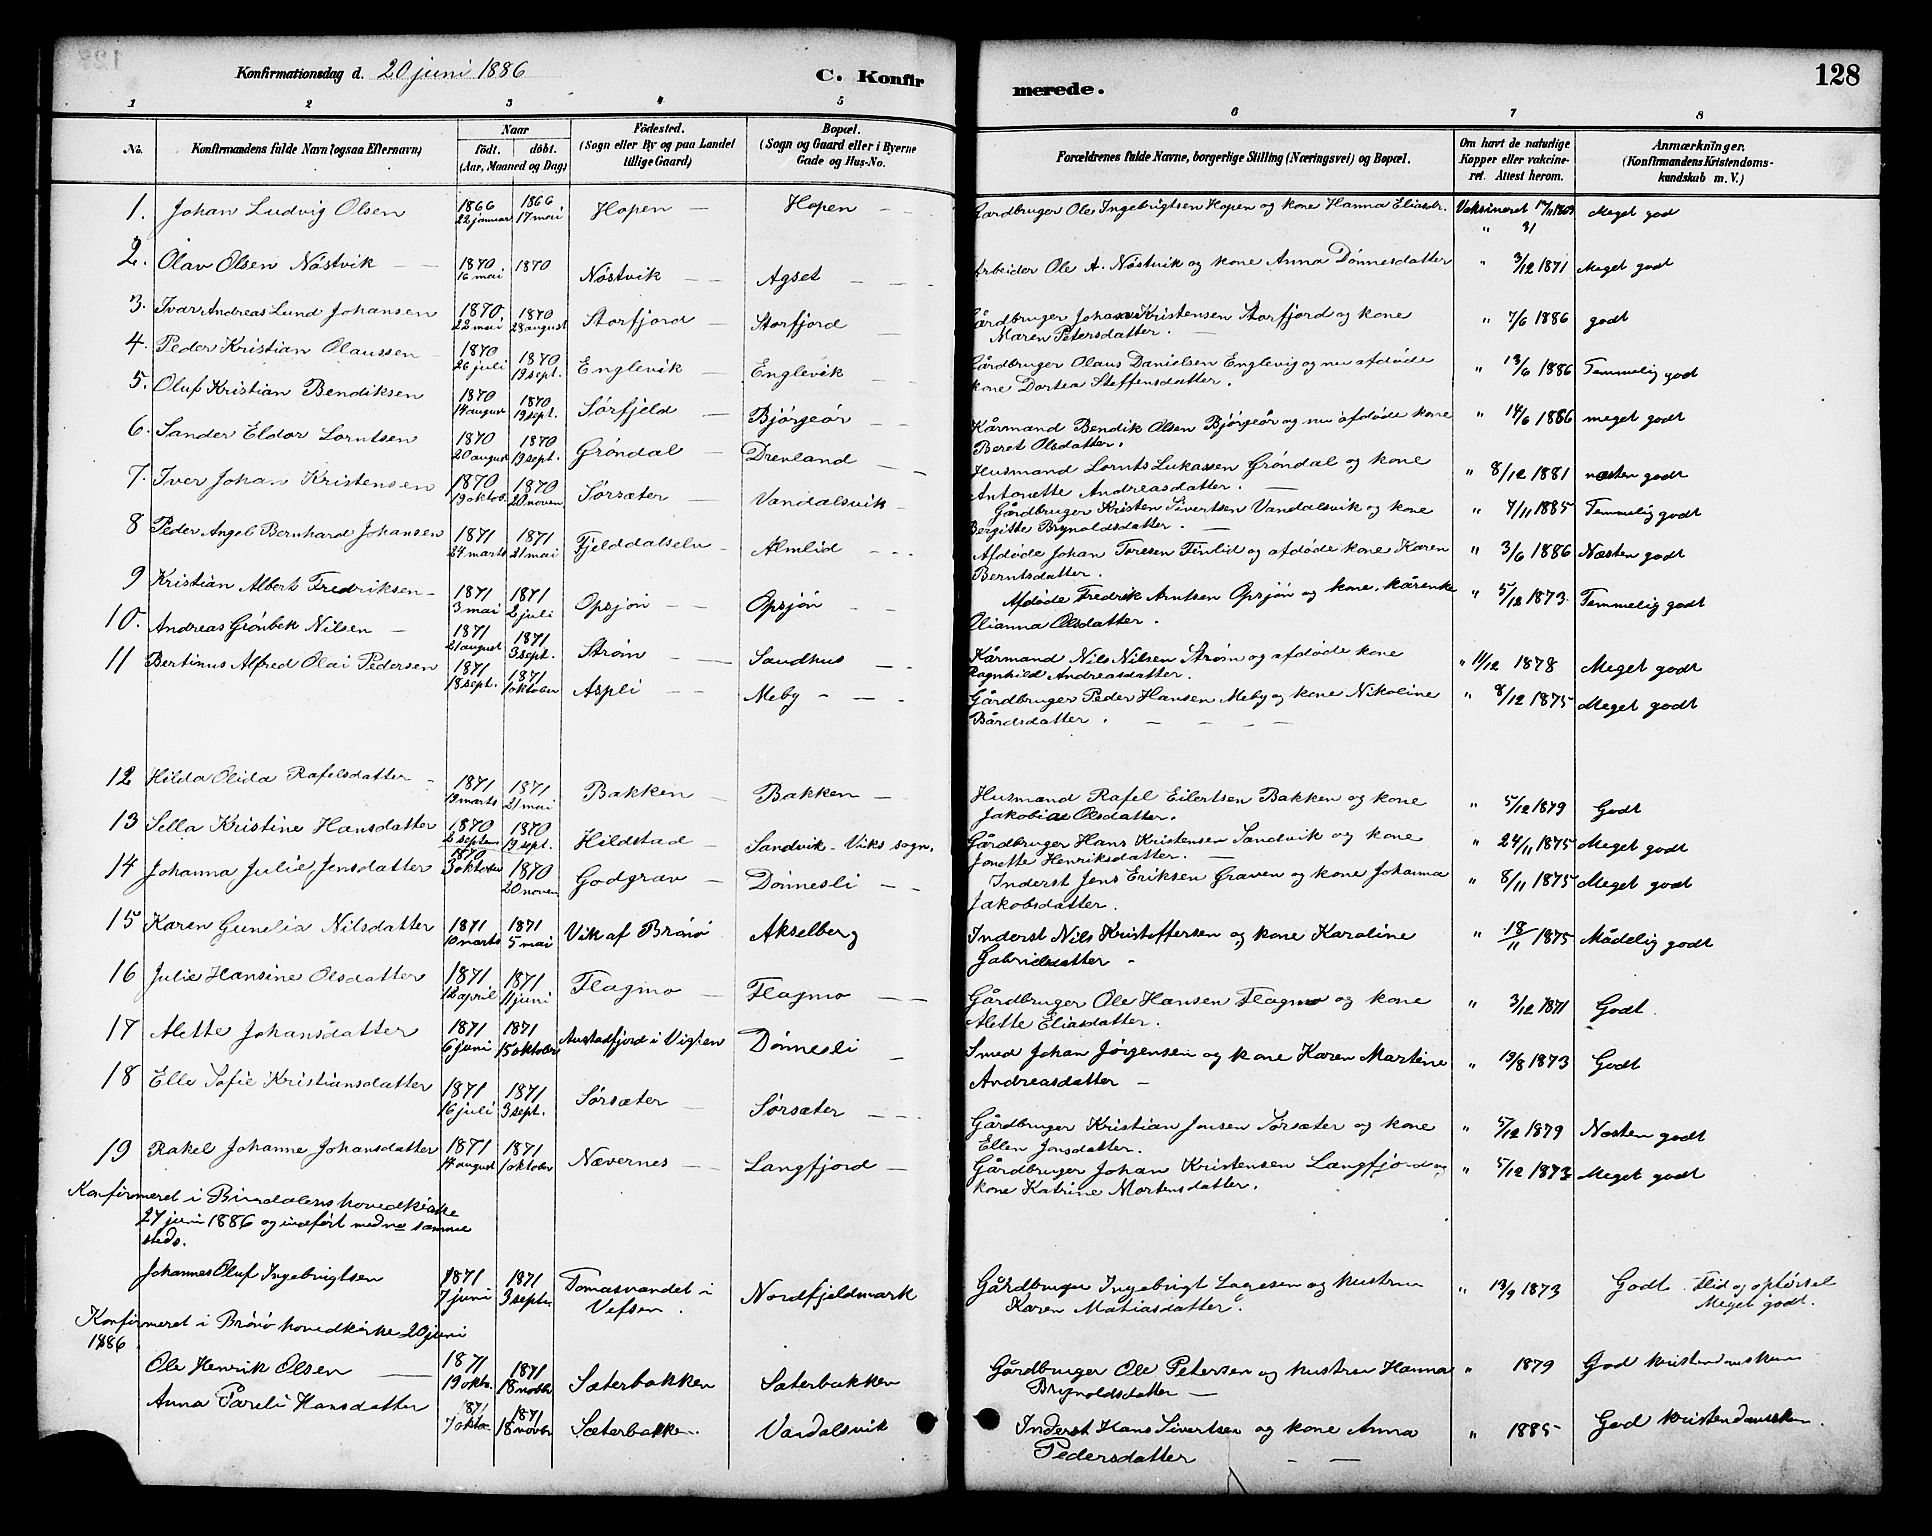 Konfirmationsdag d. 20 juni 1886
C. Konfirmerede.
128
1 2 3 4 5 6 7 8
No.
Konfirmandens fulde Navn (ogsaa Efternavn)
Naar
födt. döbt.
(Aar, Maaned og Dag)
Födested.
(Sogn eller By og paa Landet
tillige Gaard)
Bopæl.
(Sogn og Gaard eller i Byerne
Gade og Hus-No.
Forældrenes fulde Navne, borgerlige Stilling (Næringsvei) og Bopæl.
Om havt de naturlige
Kopper eller vakcine-
ret. Attest herom.
Anmærkninger.
(Konfirmandens Kristendoms-
kundskab m. V.)
1. Johan Ludvig Olsen 1866 22 januar 1866 17 mai Hopen Hopen Gardbruger Ole Ingebrigtsen Hopen og kone Hanna Eliasdr. Vaksineret Meget god
2. Olav Olsen Nöstvik 1870 16 mai 1870 Nöstvik Agset Arbeider Ole A. Nöstvik og kone Anna Dönnesdatter " 3/12 1871 Meget godt
3. Ivar Andreas Lund Johansen 1870 22 mai 1870 28 august Storfjord Storfjord Gårdbruger Johan Kristensen Storfjord og kone
Maren Petersdatter. " 7/6 1886 godt
4. Peder Kristian Olaussen 1870 26 juli 1870 19 sept. Englevik Englevik Gårdbruger Olaus Danielsen Englevig og nu afdøde
kone Dortea Steffensdatter. " 13/6 1886 Temmelig godt
5. Oluf Kristian Bendiksen 1870 14 august 1870 19 sept. Sörfjeld Bjørgeör Kårmand Bendik Olsen Bjørgeör og nu afdøde kone
Beret Olsdatter. " 14/6 1886 meget godt
6. Sander Eldor Lorntsen 1870 20 august 1870 19 sept. Gröndal Drevland Husmand Lornts Lukassen Gröndal og kone
Antonette Andreasdatter. " 8/12 1881 næsten godt
7. Iver Johan Kristensen 1870 19 oktob. 1870 20 novem Sörsæter Vandalsvik Gårdbruger Kristen Sivertsen Vandalsvik og kone
Bergitte Brynoldsdatter. " 7/11 1885 Temmelig godt
8 Peder Angel Bernhard Johansen 1871 27 marts 1871 21 mai Fjelddalselv Almlid Afdöde Johan Toresen Finlid og afdøde kone Karen
Berntsdatter. " 3/6 1886 Næsten godt
9 Kristian Albert Fredriksen 1871 3 mai 1871 2 juli Opsjön Opsjön Afdøde Fredrik Arntsen Opsjön og kone, kårenke
Olianna Olsdatter. " 5/12 1873 Temmelig godt
10. Andreas Grönbek Nilsen 1871 21 august 1871 3 sept. Ström Sandhus Kårmand Nils Nilsen Ström og afdøde kone
Ragnhild Andreasdatter. " 11/12 1878 Meget godt
11 Bertinus Alfred Olai Pedersen 1871 18 sept. 1871 1 oktober Aspli Meby Gårdbruger Peder Hansen Meby og kone Nikoline
Bårdsdatter. " 8/12 1875 Meget godt
12 Hilda Olida Rafelsdatter 1871 19 marts 1871 21 mai Bakken Bakken Husmand Rafel Eilertsen Bakken og kone
Jakobiae Olsdatter. " 5/12 1879 Godt
13 Sella Kristine Hansdatter 1870 2 septem 1870 19 sept. Hildstad Sandvik - Viks sogn. Gårdbruger Hans Kristensen Sandvik og kone
Jonette Henriksdatter. " 24/11 1875 Meget godt
14 Johanna Julie Jensdatter 1870 3 oktober 1870 20 novem Godgrav Dönnesli Inderst Jens Eriksen Graven og kone Johanna
Jakobsdatter. " 8/11 1875 Meget godt
15 Karen Gunelia Nilsdatter 1871 10 marts 1871 5 mai Vik af Brönö Akselberg Inderst Nils Kristoffersen og kone Karoline
Gabrielsdatter " 18/11 1875 Mådelig godt
16 Julie Hansine Olsdatter 1871 12 april 1871 11 juni Flagmo Flagmo Gårdbruger Ole Hansen Flagmo og kone
Alette Eliasdatter. " 3/12 1871 Godt.
17 Alette Johansdatter 1871 6 juni 1871 15 oktober Austadfjord i Vigten Dönnesli Smed Johan Jörgensen og kone Karen Martine
Andreasdatter " 19/8 1873 Godt
18 Elle Sofie Kristiansdatter 1871 16 juli 1871 3 sept. Sörsæter Sörsæter Gårdbruger Kristian Jensen Sörsæter og kone
Ellen Jonsdatter. " 5/12 1879 Næsten godt
19 Rakel Johanne Johansdatter 1871 14 august 1871 1 oktober Nævernes Langfjord Gårdbruger Johan Kristensen Langfjord og
kone Katrine Mortensdatter. " 5/12 1873 Meget godt
Konfirmeret i Bindalens hovedkirke
27 juni 1886 og indført med no samme
steds.
Johannes Oluf Ingebrigtsen 1871 7 juni 1871 3 septr. Tomasvandet i
Vefsen. Nordfjeldmark Gårdbruger Ingebrigt Lagesen og hustru
Karen Matiasdatter. " 13/9 1873 Godt. Flid og opförsel
Meget godt.
Konfirmeret i Brönö hovedkirke 20 juni
1886
Ole Henrik Olsen 1871 19 okto. 1871 18 novbr Sæterbakken Sæterbakken Gårdbruger Ole Petersen og hustru Hanna
Brynoldsdatter " 1879 God kristendomskun
Anna Pareli Hansdatter 1871 7 oktor 1871 18 novbr Sæterbakken. Vandalsvik Inderst Hans Sivertsen og kone Anna
Pedersdatter " 1885 God kristendomskun.